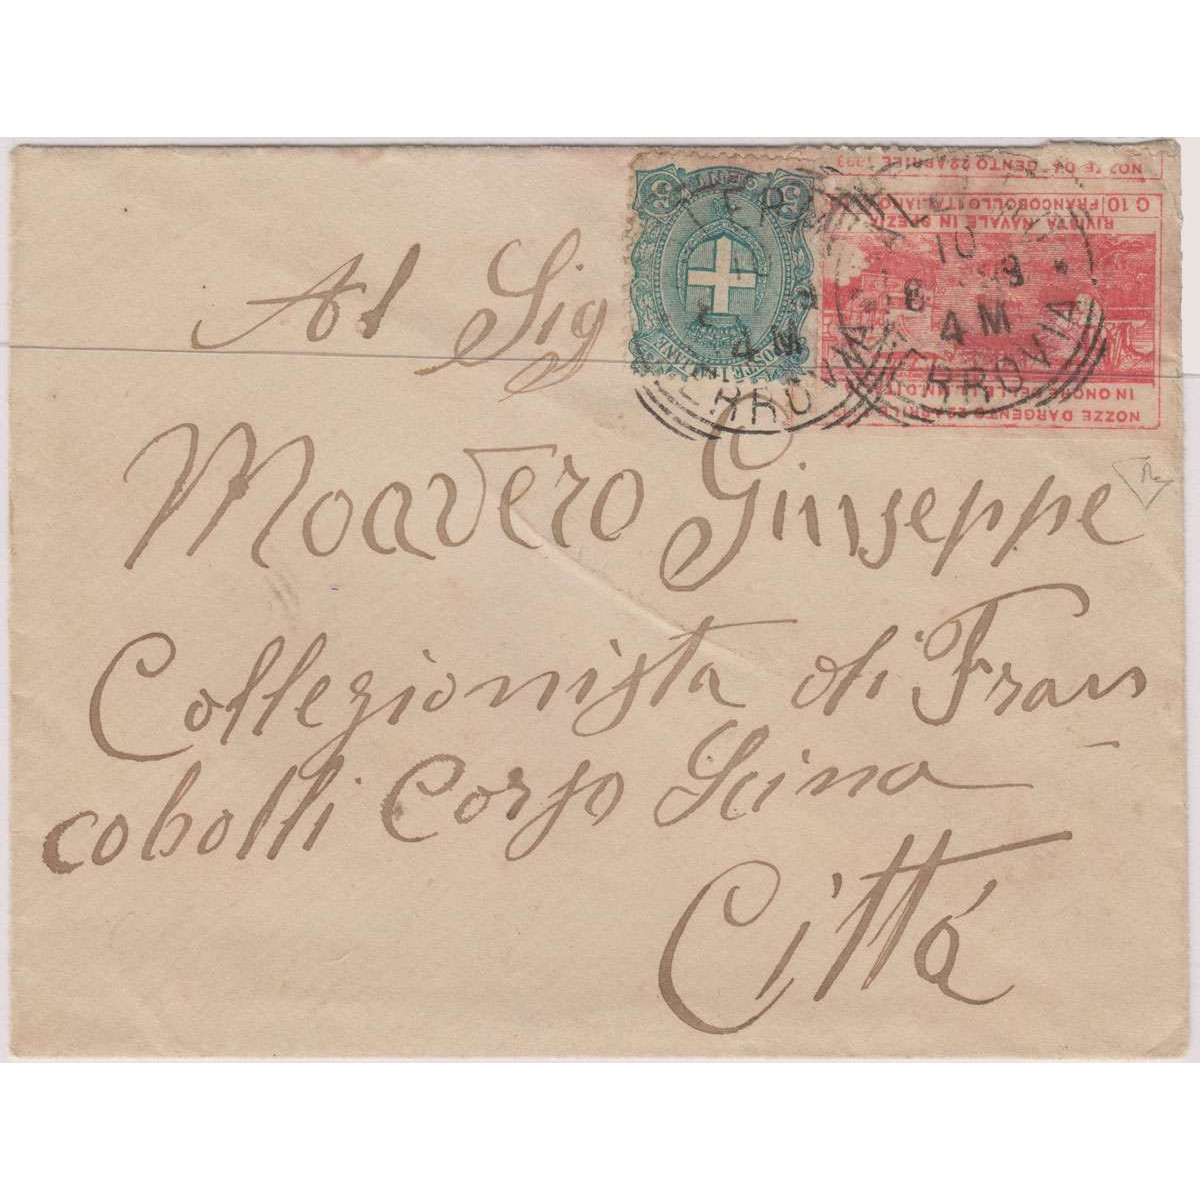 Al Sig
Moavero Giuseppe
Collezionista di Fran
cobolli Corso Scina
Città
CENT
5 5
POSTE ITALIANE
NOZZE D'ARGENTO 22 APRILE 1893
C 10 FRANCOBOLLO ITALIANO
RIVISTA NAVALE IN SPEZIA
IN ONORE
NOZZE D'ARGENTO 22 APRILE
4 M
FERROVIA
PALERMO
10
8
4 M
FERROVIA